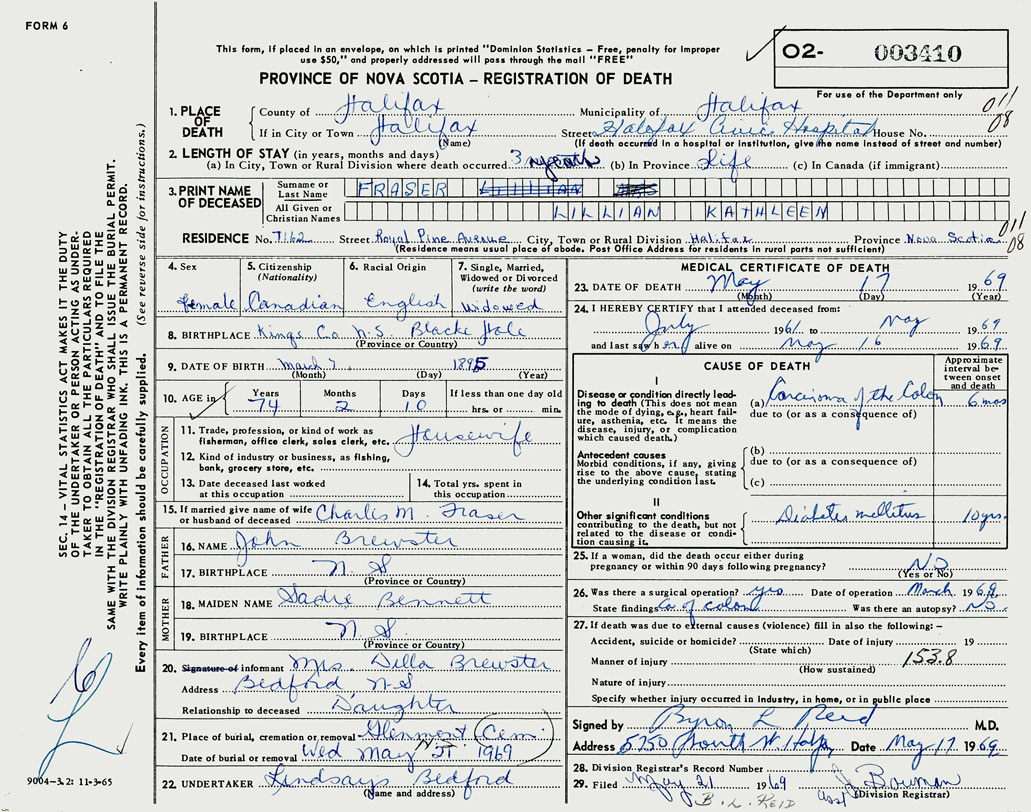 FORM 6
This form, if placed in an envelope, on which is printed "Dominion Statistics – Free, penalty for improper
use $50," and properly addressed will pass through the mail "FREE"
PROVINCE OF NOVA SCOTIA – REGISTRATION OF DEATH
O2- 003410
For use of the Department only
011
08
1. PLACE OF DEATH
County of Halifax Municipality of Halifax
If in City or Town Halifax (Name) Street Halifax Civic Hospital House No.
(If death occurred in a hospital or institution, give the name instead of street and number)
2. LENGTH OF STAY (in years, months and days)
(a) In City, Town or Rural Division where death occurred 3 (b) In Province Life (c) In Canada (if immigrant)
3. PRINT NAME OF DECEASED
Surname or Last Name FRASER LILLIAN
All Given or Christian Names LILLIAN KATHLEEN
011
08
RESIDENCE No. 7162 Street Royal Pine Avenue City, Town or Rural Division Halifax Province Nova Scotia
(Residence means usual place of abode. Post Office Address for residents in rural parts not sufficient)
4. Sex female
5. Citizenship (Nationality) Canadian
6. Racial Origin English
7. Single, Married, Widowed or Divorced (write the word) Widowed
8. BIRTHPLACE Kings Co. N.S. Blacke Hole
(Province or Country)
9. DATE OF BIRTH March 7 1895
(Month) (Day) (Year)
10. AGE in Years 74 Months 2 Days 10 If less than one day old hrs. or min.
OCCUPATION
11. Trade, profession, or kind of work as fisherman, office clerk, sales clerk, etc. Housewife
12. Kind of industry or business, as fishing, bank, grocery store, etc.
13. Date deceased last worked at this occupation
14. Total yrs. spent in this occupation
15. If married give name of wife or husband of deceased Charles M. Fraser
FATHER
16. NAME John Brewster
17. BIRTHPLACE N. S
(Province or Country)
MOTHER
18. MAIDEN NAME Sadie Bennett
19. BIRTHPLACE N. S
(Province or Country)
20. Signature of informant Mrs. Della Brewster
Address Bedford, N.S
Relationship to deceased Daughter
21. Place of burial, cremation or removal Glenmont Cem.
N.S.
Date of burial or removal Wed May 21 1969
22. UNDERTAKER Lindsays Bedford
(Name and address)
MEDICAL CERTIFICATE OF DEATH
23. DATE OF DEATH May 17 1969
(Month) (Day) (Year)
24. I HEREBY CERTIFY that I attended deceased from:
July 1961 to May 1969
and last saw her alive on May 16 1969
CAUSE OF DEATH
Approximate interval between onset and death
I
Disease or condition directly leading to death (This does not mean the mode of dying, e.g., heart failure, asthenia, etc. It means the disease, injury, or complication which caused death.)
(a) Carcinoma of the Colon 6 mos
due to (or as a consequence of)
Antecedent causes
Morbid conditions, if any, giving rise to the above cause, stating the underlying condition last.
(b)
due to (or as a consequence of)
(c)
II
Other significant conditions contributing to the death, but not related to the disease or condition causing it.
Diabetes mellitus 10 yrs.
25. If a woman, did the death occur either during
pregnancy or within 90 days following pregnancy? No
(Yes or No)
26. Was there a surgical operation? yes Date of operation March 1969
State findings Ca of colon Was there an autopsy? No
27. If death was due to external causes (violence) fill in also the following: –
Accident, suicide or homicide? Date of injury 19
(State which)
Manner of injury 153.8
(How sustained)
Nature of injury
Specify whether injury occurred in industry, in home, or in public place
Signed by Byron L Reid M.D.
Address 5750 South St Hfx Date May 17 1969
28. Division Registrar's Record Number
29. Filed May 21 1969 J. Bowman
Asst (Division Registrar)
B. L. REID
SEC. 14 – VITAL STATISTICS ACT MAKES IT THE DUTY
OF THE UNDERTAKER OR PERSON ACTING AS UNDER-
TAKER TO OBTAIN ALL THE PARTICULARS REQUIRED
IN THE "REGISTRATION OF DEATH" AND TO FILE THE
SAME WITH THE DIVISION REGISTRAR WHO SHALL ISSUE THE BURIAL PERMIT.
WRITE PLAINLY WITH UNFADING INK. THIS IS A PERMANENT RECORD.
Every item of information should be carefully supplied. (See reverse side for instructions.)
9004-3.2: 11-3-65